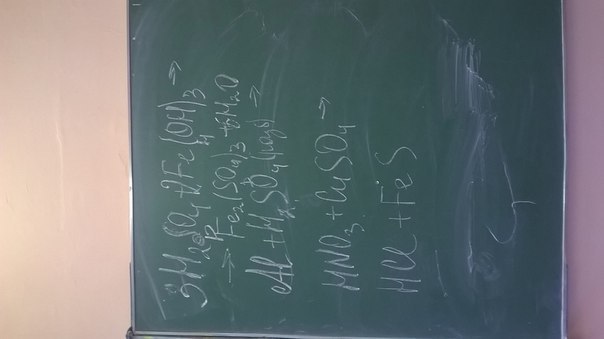 3H₂SO₄ + 2Fe(OH)₃ →
→ Fe₂(SO₄)₃ + 6H₂O
Al + H₂SO₄ (разб) →
HNO₃ + CuSO₄ →
HCl + FeS